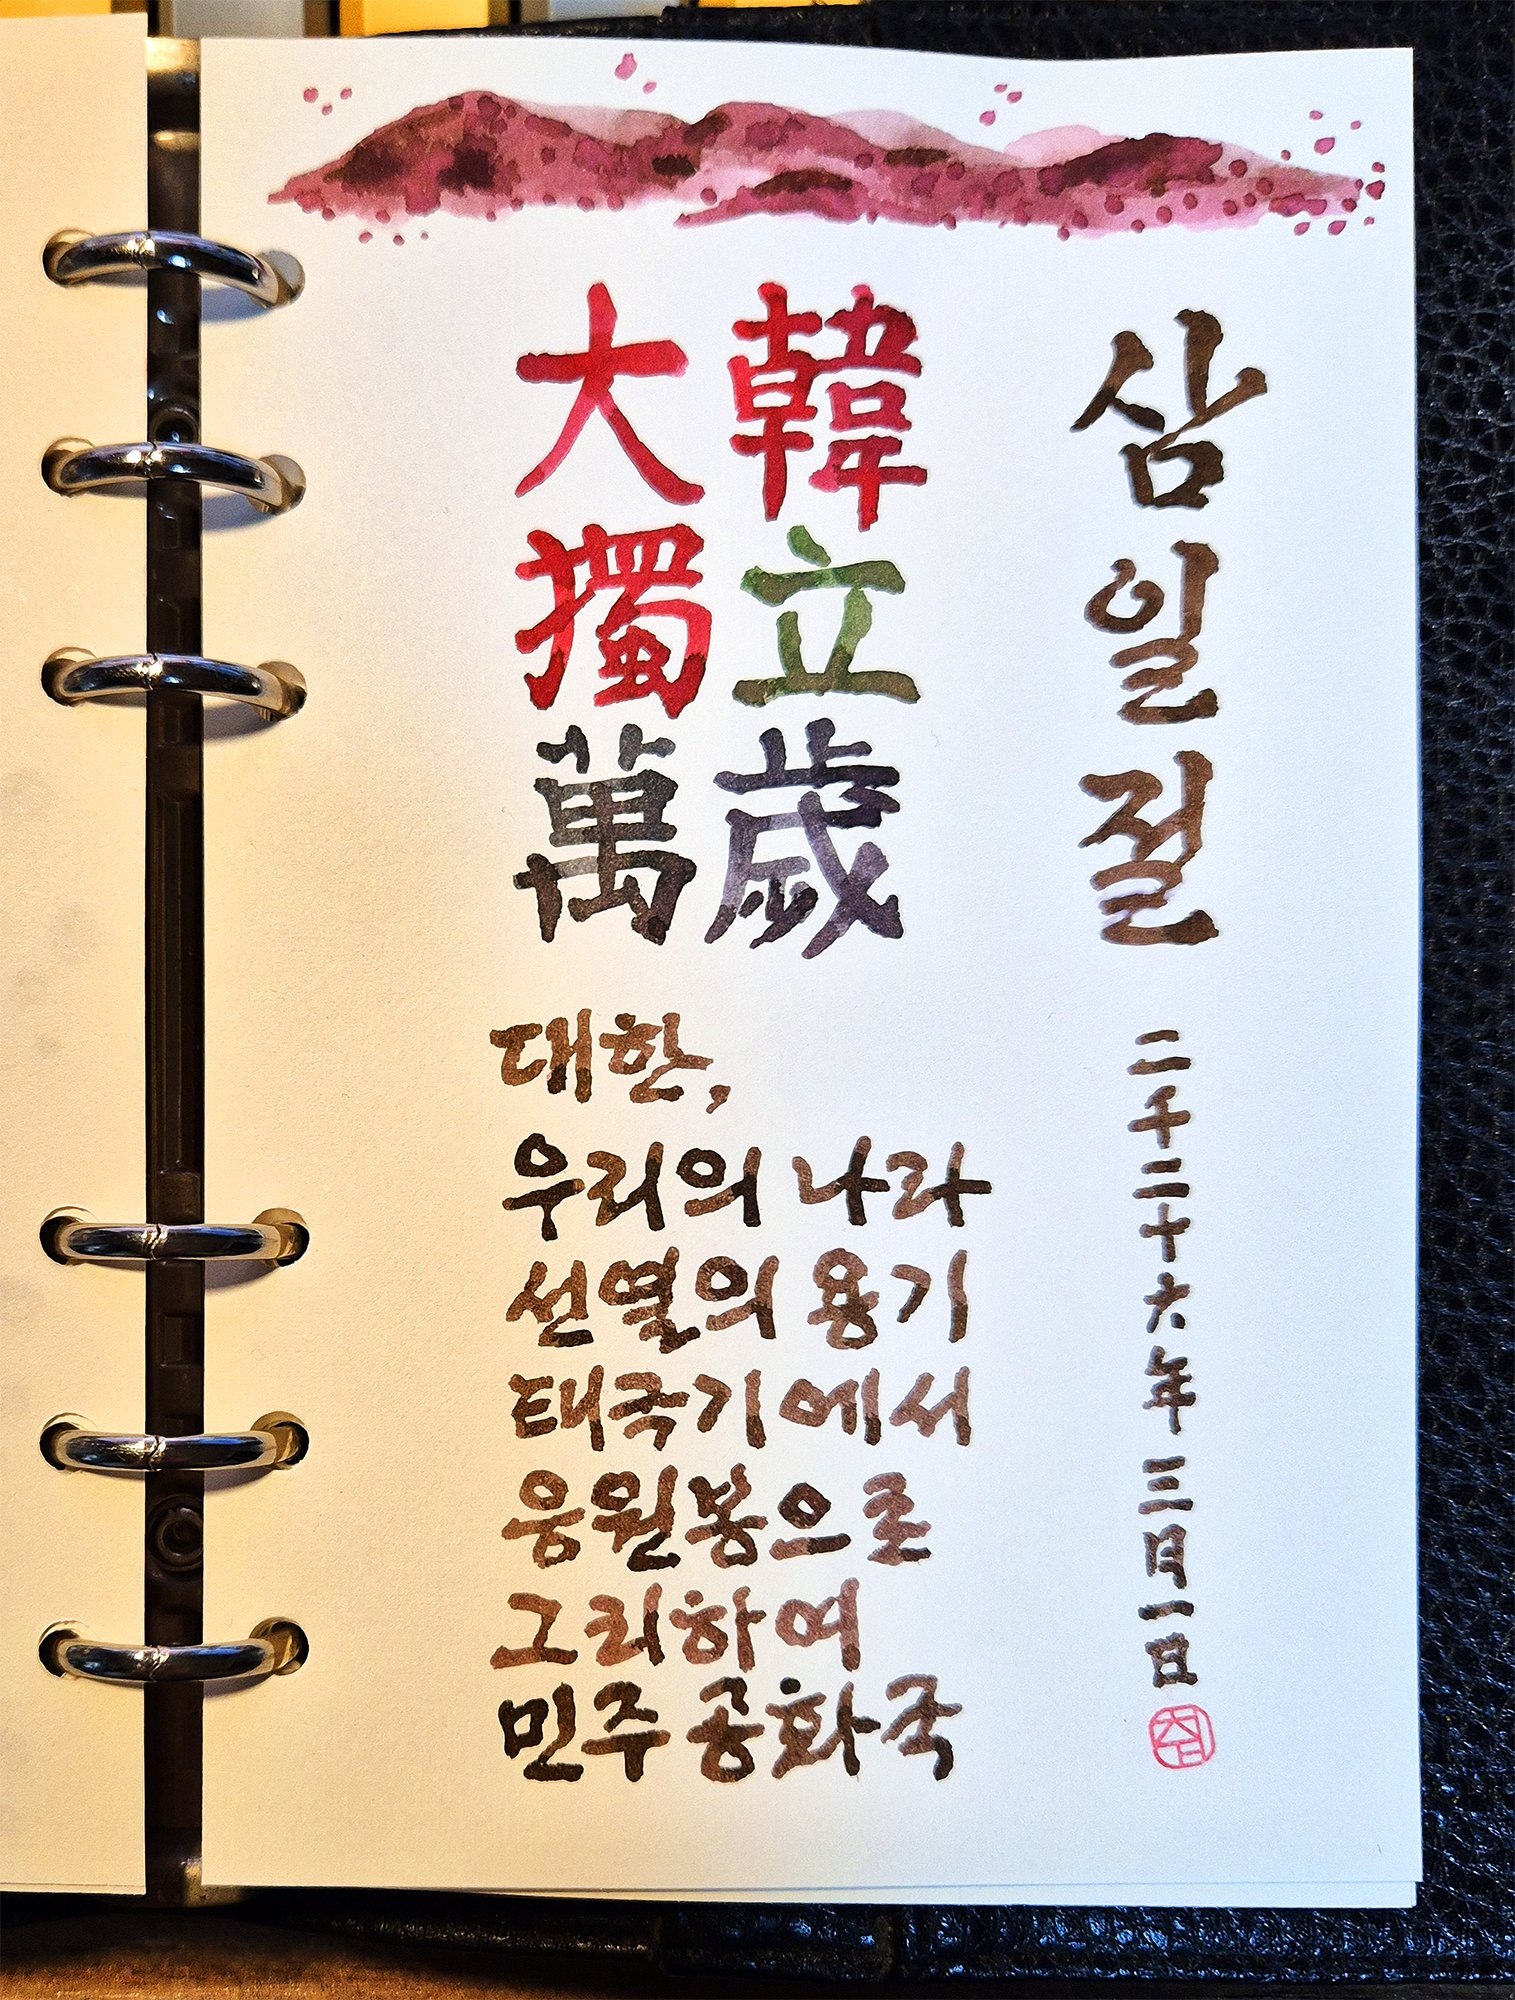 삼일절
二千二十六年 三月一日
大韓
獨立
萬歲
대한,
우리의 나라
선열의 용기
태극기에서
응원봉으로
그리하여
민주 공화국